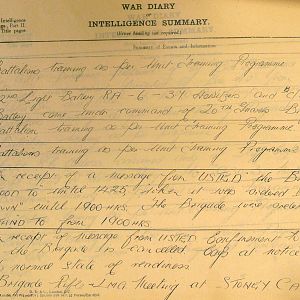 WAR DIARY
OF
INTELLIGENCE SUMMARY.
(Erase heading not required.)
Intelligence
Part II.
Title pages
Summary of Events and Information
Battalions training as per Unit Training Programme
2nd Light Battery RA - 6 - 3.7 Howitzers and
Battery came under command of 20TH
Battalion training as per Unit Training Programme
Battalions training as per Unit Training Programme
receipt of a message from USTED the
to until 1425 when it was ordered
" until 1900 HRS. The Brigade were ordered
STAND TO from 1900 HRS
receipt of message from USTED Confinement to
the Brigade is cancelled. at notice
normal state of readiness
Brigade Meeting at STONEY CA